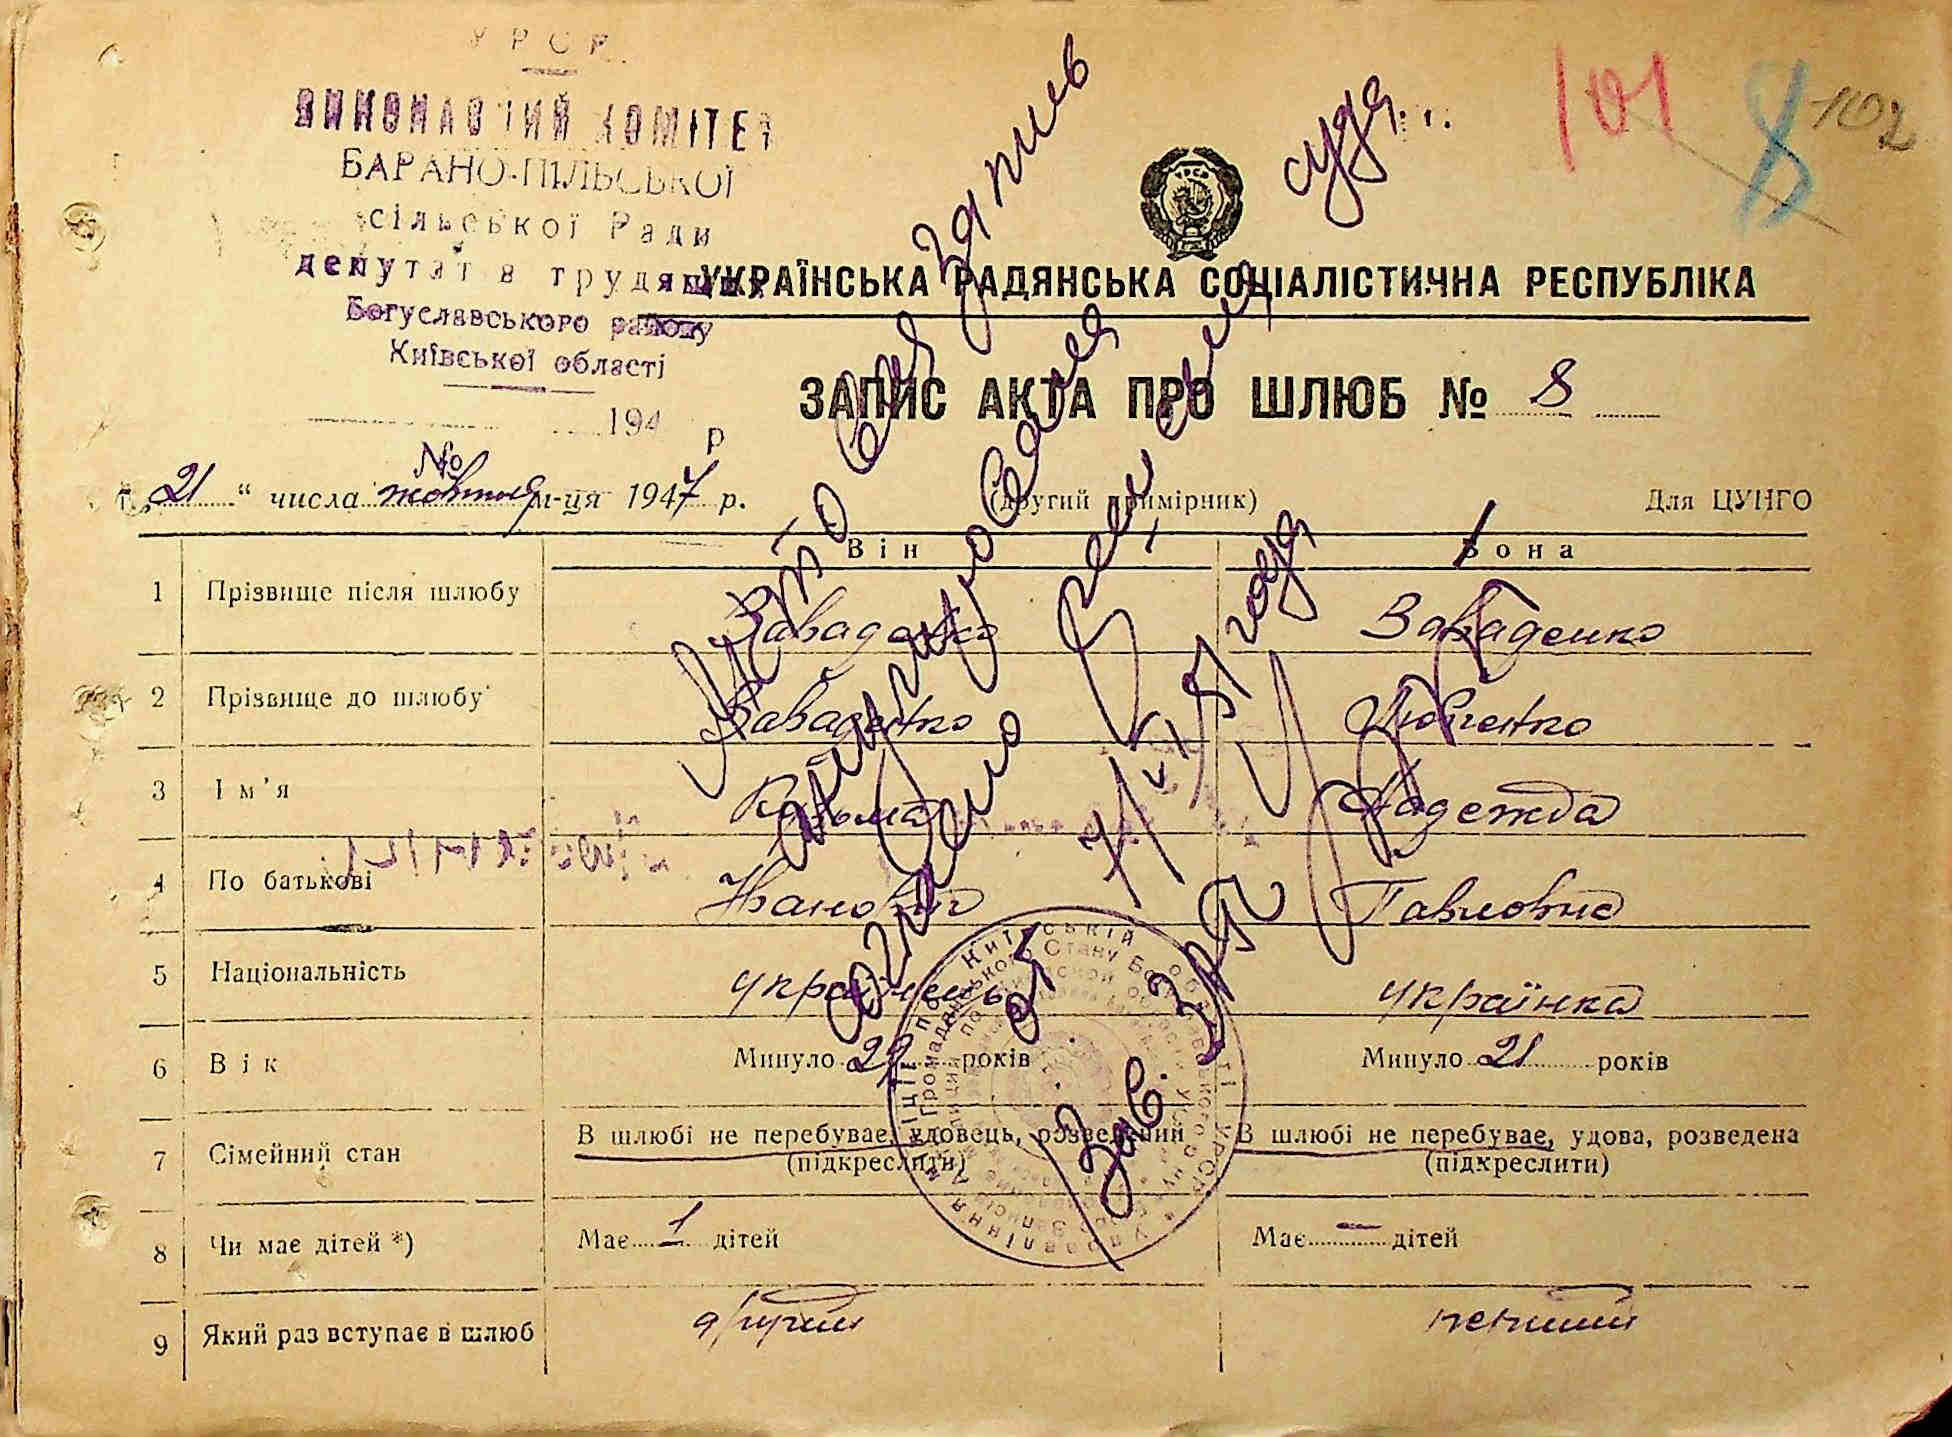 УРСР
ВИКОНАВЧИЙ КОМІТЕТ
БАРАНО-ПІЛЬСЬКОЇ
сільської Ради
депутатів трудящих
Богуславського району
Київської області
194 р
№
101 8 102
УКРАЇНСЬКА РАДЯНСЬКА СОЦІАЛІСТИЧНА РЕСПУБЛІКА
ЗАПИС АКТА ПРО ШЛЮБ № 8
"21" числа жовтня м-ця 1947 р.
(Другий примірник)
Для ЦУНГО
Він Вона
1 Прізвище після шлюбу Заваденко Заваденко
2 Прізвище до шлюбу Заваденко
3 Ім'я Кузьма Надежда
4 По батькові Іванович Павловна
5 Національність українець українка
6 Вік Минуло 29 років Минуло 21 років
7 Сімейний стан В шлюбі не перебуває, удовець, розведений В шлюбі не перебуває, удова, розведена
(підкреслити) (підкреслити)
8 Чи має дітей *) Має 1 дітей Має — дітей
9 Який раз вступає в шлюб другий перший
суда
решения
года
Зав. ЗАГС